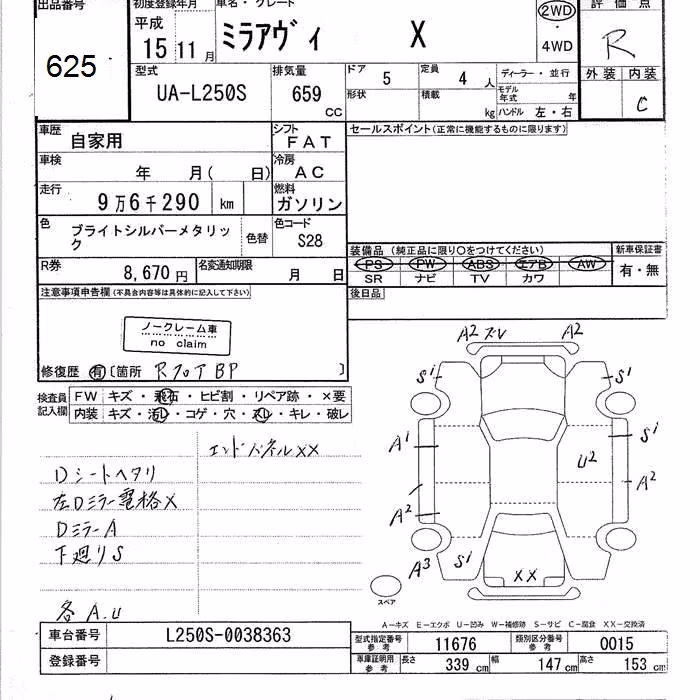 出品番号
625
初度登録年月
平成
15年11月
車名・グレード
ミラアヴィ X
2WD
・
4WD
評価点
R
外装 内装
C
型式
UA-L250S
排気量
659 CC
ドア 5
定員 4人
形状
積載 kg
ディーラー・並行
モデル年式 年
ハンドル 左・右
車歴 自家用
シフト FAT
車検 年 月( 日)
冷房 AC
走行 9万6千290 km
燃料 ガソリン
色 ブライトシルバーメタリック
色替
色コード S28
R券 8,670円
名変通知期限 月 日
セールスポイント(正常に機能するものに限ります)
装備品 (純正品に限り○をつけてください)
PS PW ABS エアB AW
SR ナビ TV カワ
新車保証書
有・無
後日品
注意事項申告欄(不具合内容等は具体的に記入して下さい)
ノークレーム車
no claim
修復歴 有 [箇所 RフロアBP ]
検査員記入欄
FW キズ・飛石・ヒビ割・リペア跡・×要
内装 キズ・汚レ・コゲ・穴・スレ・キレ・破レ
エンドパネルXX
Dシートヘタリ
左Dミラー電格X
DミラーA
下廻りS
各A.U
A2 ズレ A2
S1 S1
A1 S1
U2
A2 A2
A3 S1
XX
スペア
A-キズ E-エクボ U-凹み W-補修跡 S-サビ C-腐食 XX-交換済
車台番号 L250S-0038363
登録番号
型式指定番号 参考 11676
類別区分番号 参考 0015
車庫証明用 参考 長さ 339 cm 幅 147 cm 高さ 153 cm